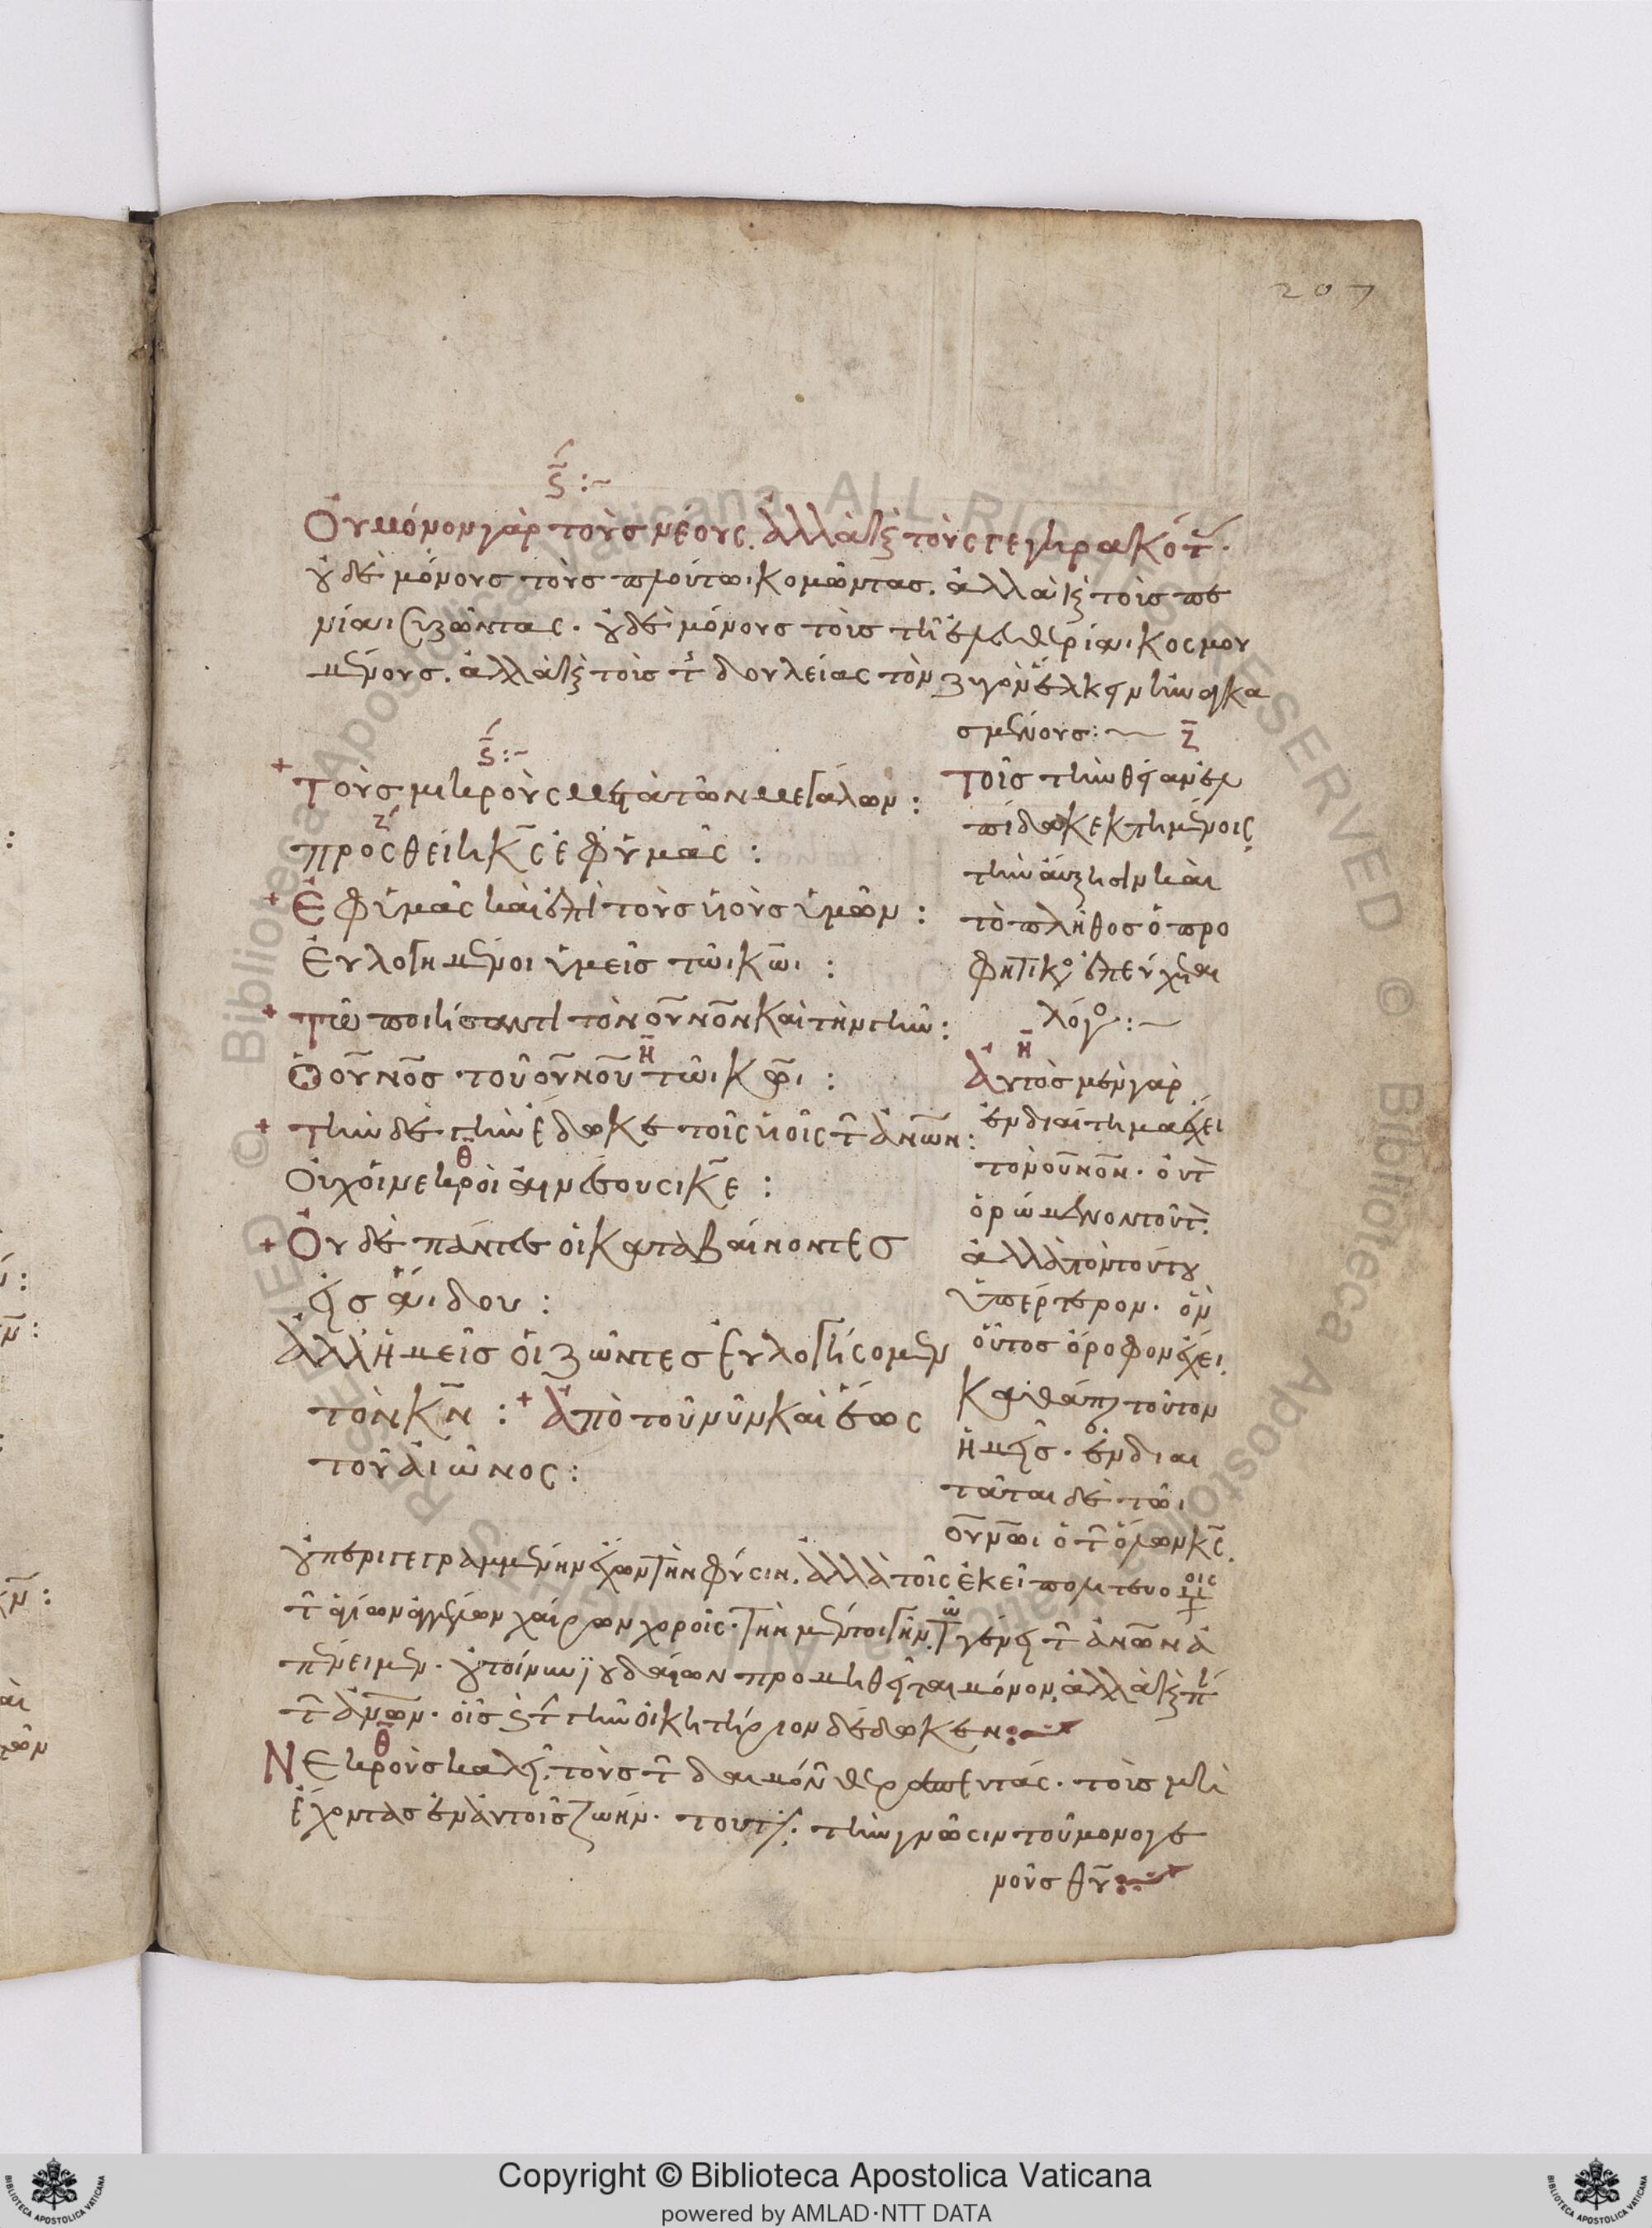 207
ϛ :~
Οὐ μόνον γὰρ τοὺς νέους. ἀλλὰ κ τοὺς γεγηρακότ̑.
οὐδὲ μόνους τοὺς πλούτωι κομῶντας. ἀλλὰ κ τοὺς πε
νίαι συζῶντας. οὐδὲ μόνους τοὺς τῆ ἐλευθερίαι κοσμου
μένους. ἀλλὰ κ τοὺς τ̑ δουλείας τὸν ζυγὸν ἕλκειν ἠναγκα
σμένους :~
ϛ :~
+ Τοὺς μικροὺς μετὰ τῶν μεγάλων :
ζ
προσθείη κ̅ς̅ ἐφ' ὑμᾶς :
+ Ἐφ' ὑμᾶς καὶ ἐπὶ τοὺς υἱοὺς ὑμῶν :
Εὐλογημένοι ὑμεῖς τῶι κ̅ω̅ι :
+ Τῶ ποιήσαντι τὸν ο̅υ̅ν̅ο̅ν̅ καὶ τὴν γῆν :
η
Ὁ ο̅υ̅ν̅ο̅ς̅ τοῦ ο̅υ̅ν̅ο̅υ̅ τῶι κ̅ω̅ι :
+ Τὴν δὲ γῆν ἔδωκε τοῖς υἱοῖς τ̑ ἀ̅ν̅ω̅ν̅ :
θ
Οὐχ οἱ νεκροὶ αἰνέσουσι κ̅ε̅ :
+ Οὐδὲ πάντες οἱ καταβαίνοντες
εἰς ἅιδου :
Ἀλλ' ἡμεῖς οἱ ζῶντες εὐλογήσομεν
τὸν κ̅ν̅ : + Ἀπὸ τοῦ νῦν καὶ ἕως
τοῦ αἰῶνος :
ζ
Τοῖς τὴν θείαν ἐλ
πίδα κεκτημένοις
τὴν αὔξησιν καὶ
τὸ πλῆθος ὁ προ
φητικὸς ἐπεύχεται
λόγος :~
η
Αὐτὸς μὲν γὰρ
ἐνδιαίτημα ἔχει
τὸν ο̅υ̅ν̅ο̅ν̅. οὐ τ
ὁρώμενον τοῦτ.
ἀλλὰ τὸν τούτου
ὑπέρτερον. ὃν
οὗτος ὄροφον ἔχει.
καθάπερ τοῦτον
ἡμεῖς. ἐνδιαι
τᾶται δὲ τῶι
ο̅υ̅ν̅ω̅ι ὁ τ̑ ὅλων κ̅ς̅.
οὐ περιγεγραμμένην ἔχων τὴν φύσιν. ἀλλὰ τοῖς ἐκεῖ πολιτευομένοις
τ̑ ἁγίων ἀγγέλων χαίρων χοροῖς. τὴν μέντοι γῆν. τῶ γένει τ̑ ἀ̅ν̅ω̅ν̅ ἀ
πένειμεν. οὐ τοίνυν ἰουδαίων προμηθεῖται μόνον. ἀλλὰ κ π
τ̑ ἀ̅ν̅ω̅ν̅. οἷς τ γῆν οἰκητήριον δέδωκεν :~
θ
Νεκροὺς καλεῖ. τοὺς τ̑ δαιμόν̑ θεραπευτάς. τοὺς μὴ
ἔχοντας ἐν αὐτοῖς ζωήν. τουτ. τὴν γνῶσιν τοῦ μονογε
νοῦς θ̅υ̅ :~
Copyright © Biblioteca Apostolica Vaticana
powered by AMLAD·NTT DATA